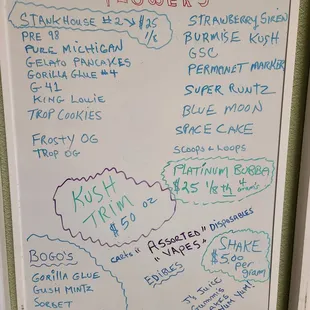 FLOWERS
STANKHOUSE #2 → $25 1/8
PRE 98
PURE MICHIGAN
GELATO PANCAKES
GORILLA GLUE #4
G-41
KING LOUIE
TROP COOKIES
FROSTY OG
TROP OG
STRAWBERRY SIREN
BURMISE KUSH
GSC
PERMANET MARKER
SUPER RUNTZ
BLUE MOON
SPACE CAKE
SCOOPS + LOOPS
PLATINUM BUBBA
$25 1/8th
KUSH
TRIM
$50 OZ
CARTS "ASSORTED" DISPOSABLES
"VAPES"
EDIBLES
SHAKE
$5.00
per
gram
BOGO'S
GORILLA GLUE
GUSH MINTZ
SORBET
J's JUICE
YUM YUM!